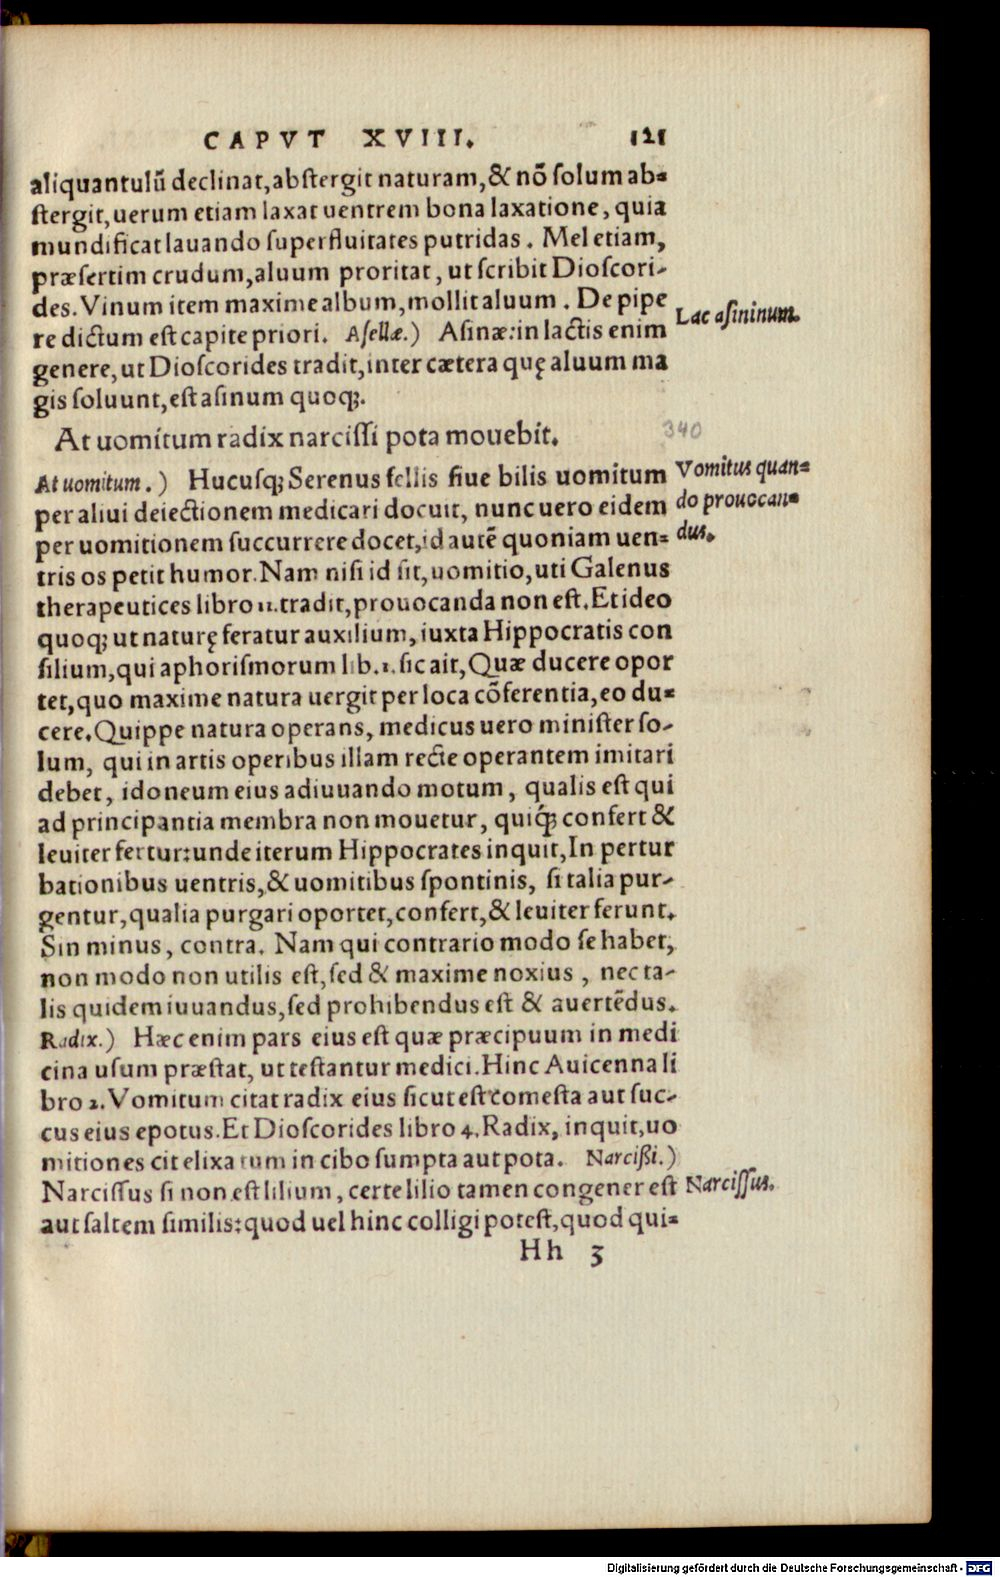 CAPVT XVIII. 121
aliquantulū declinat, abſtergit naturam, & nō ſolum ab-
ſtergit, uerum etiam laxat uentrem bona laxatione, quia
mundificat lauando ſuperfluitates putridas. Mel etiam,
præſertim crudum, aluum proritat, ut ſcribit Dioſcori-
des. Vinum item maxime album, mollit aluum. De pipe
re dictum eſt capite priori. Aſellæ.) Aſinæ: in lactis enim
Lac aſininum.
genere, ut Dioſcorides tradit, inter cætera quę aluum ma
gis ſoluunt, eſt aſinum quoq;.
At uomitum radix narciſſi pota mouebit.
340
At uomitum.) Hucuſq; Serenus fellis ſiue bilis uomitum
Vomitus quan-
per aliui deiectionem medicari docuit, nunc uero eidem
do prouocan-
per uomitionem ſuccurrere docet, id autē quoniam uen-
dus.
tris os petit humor. Nam niſi id ſit, uomitio, uti Galenus
therapeutices libro 11. tradit, prouocanda non eſt. Et ideo
quoq; ut naturę feratur auxilium, iuxta Hippocratis con
ſilium, qui aphoriſmorum lib. 1. ſic ait, Quæ ducere opor
tet, quo maxime natura uergit per loca cōferentia, eo du-
cere. Quippe natura operans, medicus uero miniſter ſo-
lum, qui in artis operibus illam recte operantem imitari
debet, idoneum eius adiuuando motum, qualis eſt qui
ad principantia membra non mouetur, quiq́; confert &
leuiter fertur: unde iterum Hippocrates inquit, In pertur
bationibus uentris, & uomitibus ſpontinis, ſi talia pur-
gentur, qualia purgari oportet, confert, & leuiter ferunt.
Sin minus, contra. Nam qui contrario modo ſe habet,
non modo non utilis eſt, ſed & maxime noxius, nec ta-
lis quidem iuuandus, ſed prohibendus eſt & auertēdus.
Radix.) Hæc enim pars eius eſt quæ præcipuum in medi
cina uſum præſtat, ut teſtantur medici. Hinc Auicenna li
bro 2. Vomitum citat radix eius ſicut eſt comeſta aut ſuc-
cus eius epotus. Et Dioſcorides libro 4. Radix, inquit, uo
mitiones cit elixa tum in cibo ſumpta aut pota. Narcißi.)
Narciſſus ſi non eſt lilium, certe lilio tamen congener eſt
Narciſſus.
aut ſaltem ſimilis: quod uel hinc colligi poteſt, quod qui-
Hh 3
Digitalisierung gefördert durch die Deutsche Forschungsgemeinschaft - DFG